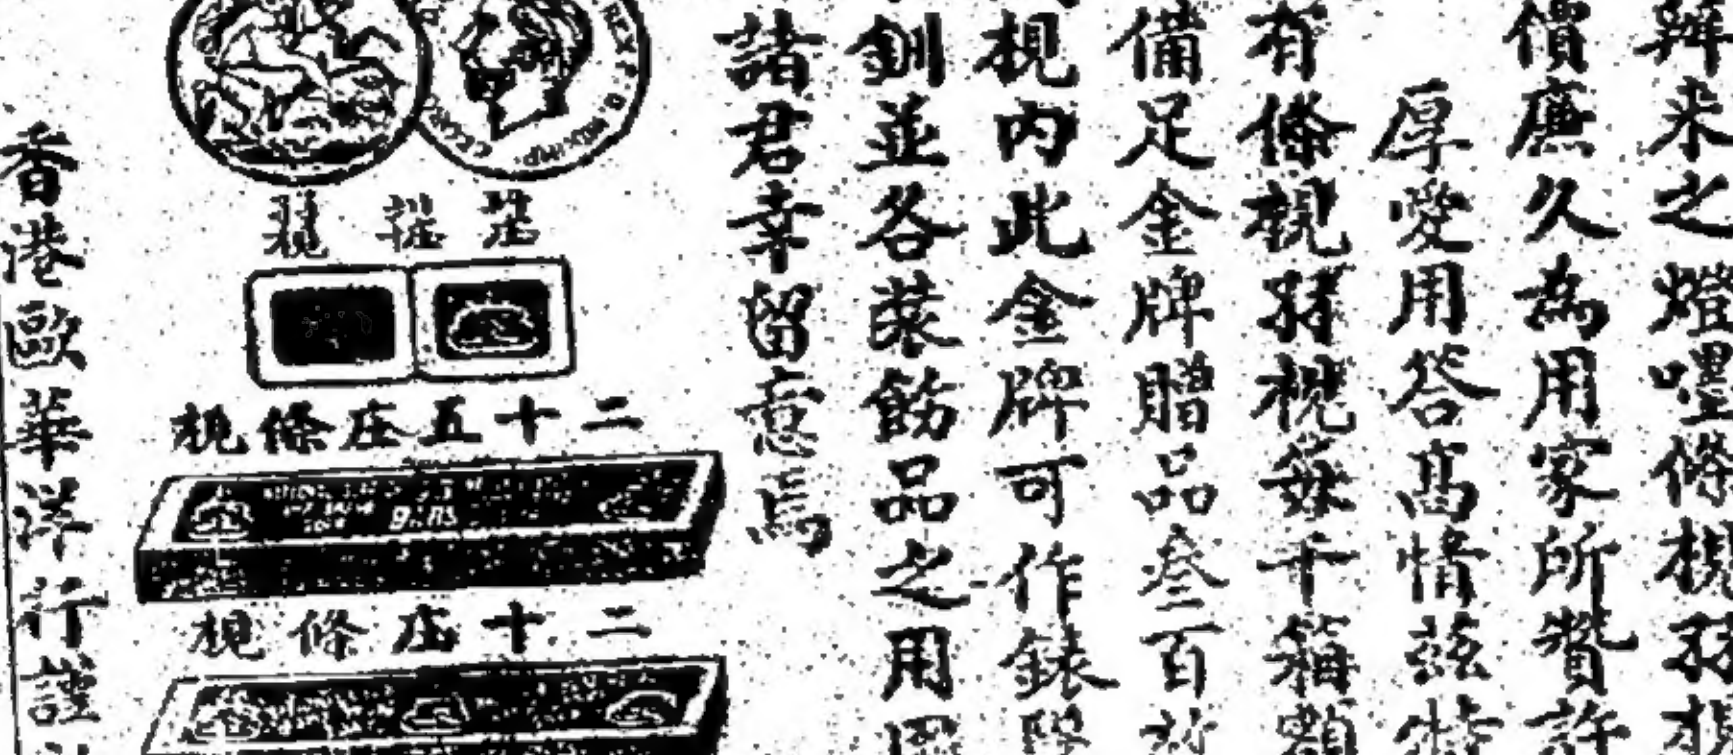 辦来之燈嚜條梘孖
價廉久為用家所贊許
厚愛用答高情茲特
有條梘孖梘每千箱額
備足金牌贈品叁百
梘内此金牌可作錶
釧並各裝飾品之用
諸君幸留意焉
二十五庄條梘
二十庄條梘
香港歐華洋行謹